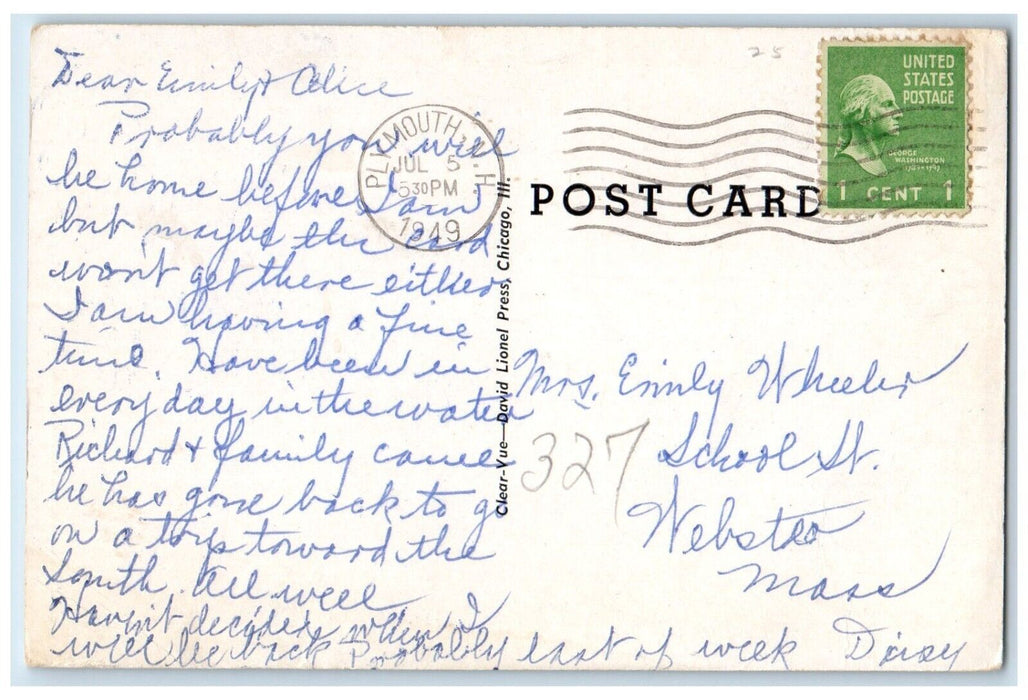 Dear Emily & Alice
Probably you will
be home before I am
but maybe the card
won't get there either
I am having a fine
time. Have been in
every day in the water
Richard & family came
he has gone back to go
on a trip toward the
South. All well
Haven't decided when I
will be back Probably last of week Daisy
25
PLYMOUTH, N.H.
JUL 5
530PM
1949
UNITED
STATES
POSTAGE
GEORGE
WASHINGTON
1789-1797
1 CENT 1
POST CARD
Clear-Vue—David Lionel Press, Chicago, Ill.
Mrs. Emily Wheeler
School St.
Webster
Mass
327